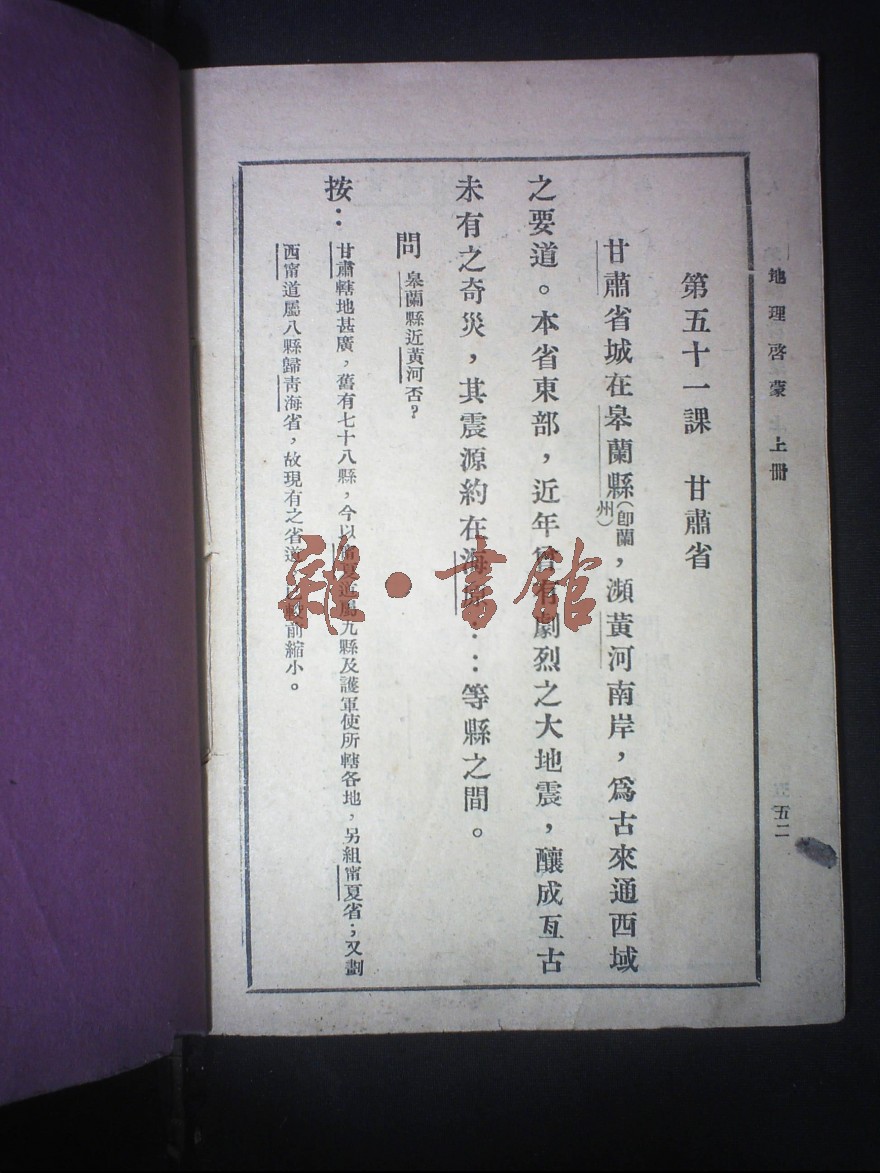 地理啓蒙 上冊
五二
第五十一課 甘肅省
甘肅省城在皋蘭縣(卽蘭州),瀕黃河南岸,爲古來通西域
之要道。本省東部,近年曾有劇烈之大地震,釀成亙古
未有之奇災,其震源約在海原……等縣之間。
問 皋蘭縣近黃河否?
按:甘肅轄地甚廣,舊有七十八縣,今以甯夏道屬九縣及護軍使所轄各地,另組甯夏省;又劃
西甯道屬八縣歸青海省,故現有之省道,前縮小。
雜·書館